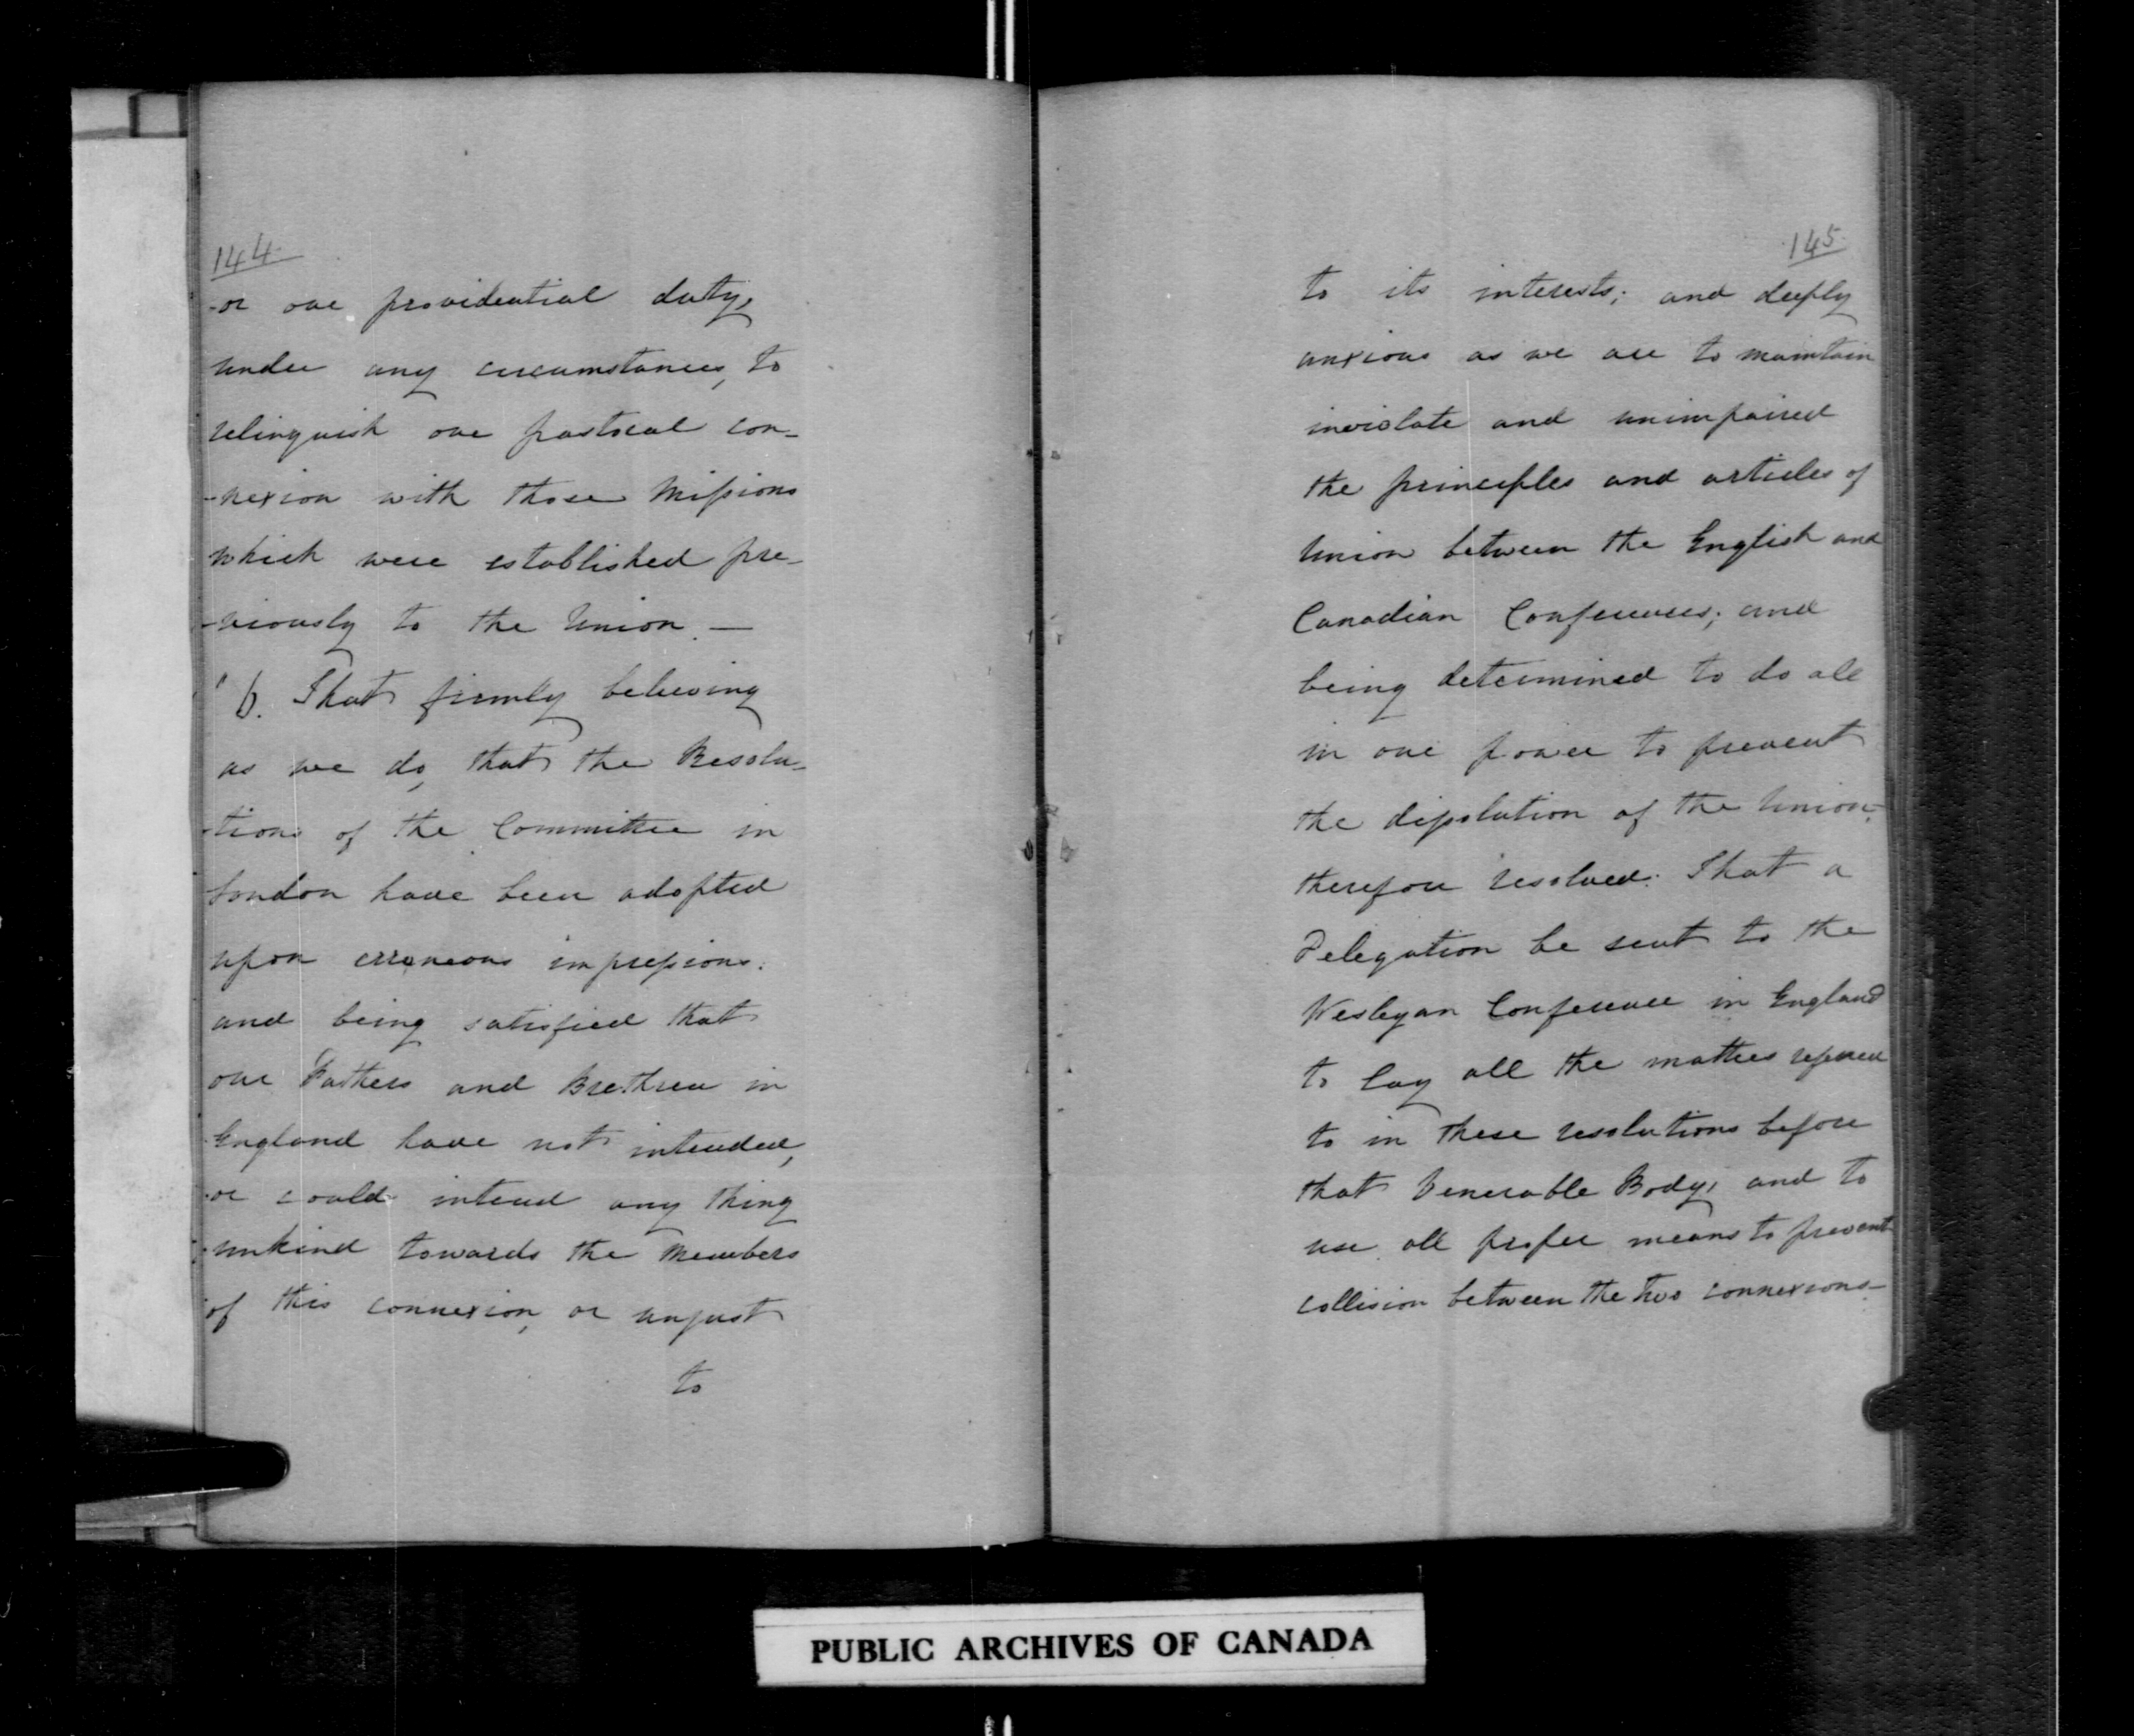 144
or our providential duty,
under any circumstances, to
relinquish our pastoral con-
-nexion with those Missions
which were established pre-
-viously to the Union. —
"6. That firmly believing
as we do, that the Resolu-
-tions of the Committee in
London have been adopted
upon erroneous impressions.
and being satisfied that
our Fathers and Brethren in
England have not intended,
or could intend any thing
unkind towards the Members
of this connexion, or unjust
to
145
to its interests; and deeply
anxious as we are to maintain
inviolate and unimpaired
the principles and articles of
Union between the English and
Canadian Conferences; and
being determined to do all
in our power to prevent
the dissolution of the Union,
therefore resolved: That a
Delegation be sent to the
Wesleyan Conference in England
to lay all the matters referred
to in these resolutions before
that Venerable Body, and to
use all proper means to prevent
collision between the two connexions—
PUBLIC ARCHIVES OF CANADA